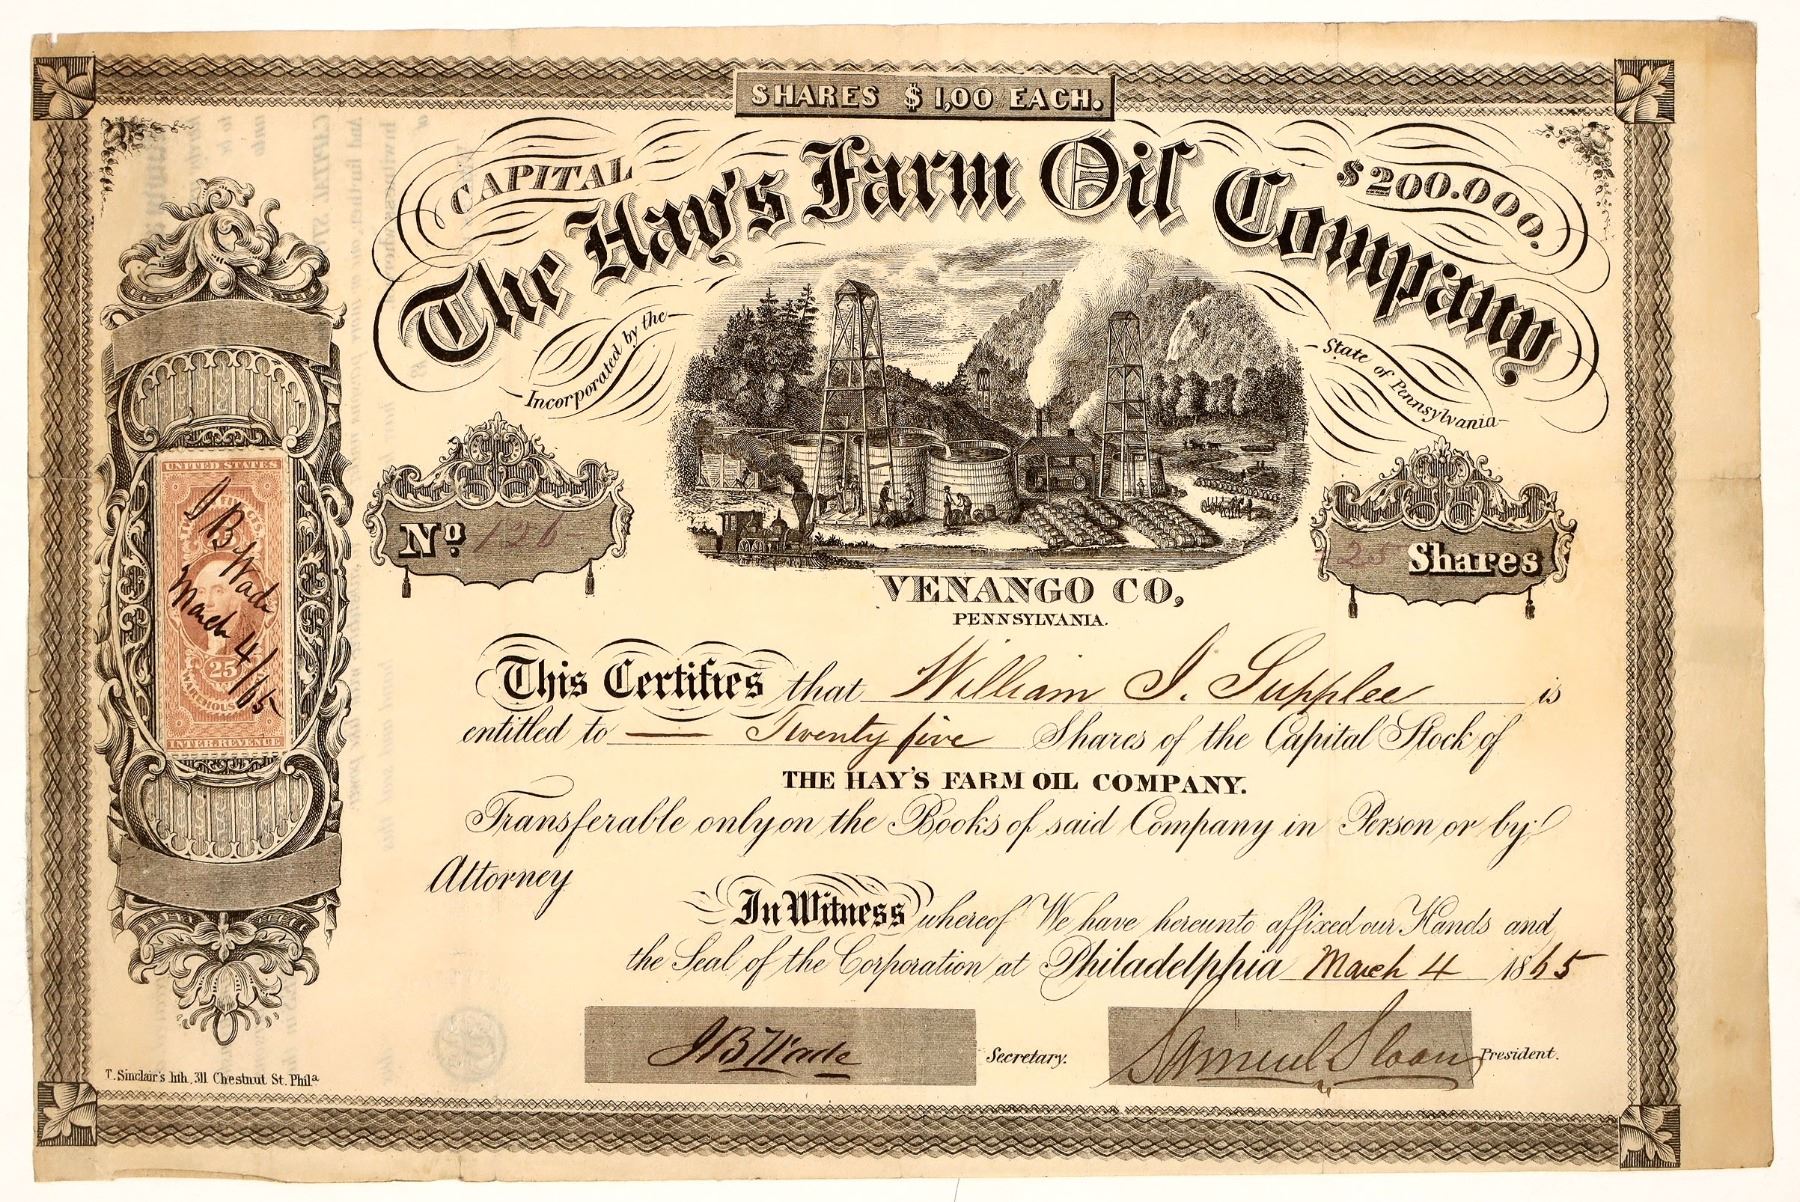 SHARES $ 1,00 EACH.
CAPITAL
$200.000.
The Hay's Farm Oil Company
Incorporated by the
State of Pennsylvania
No 126
25 Shares
VENANGO CO,
PENNSYLVANIA.
This Certifies that William I. Supplee is
entitled to Twenty five Shares of the Capital Stock of
THE HAY'S FARM OIL COMPANY.
Transferable only on the Books of said Company in Person or by
Attorney
In Witness whereof We have hereunto affixed our Hands and
the Seal of the Corporation at Philadelphia March 4 1865
J B Wade Secretary.
Samuel Sloan President.
UNITED STATES
J B Wade
March 4/65
25
WAREHOUSE
INTER. REVENUE
T. Sinclair's lith, 311 Chestnut St. Phila